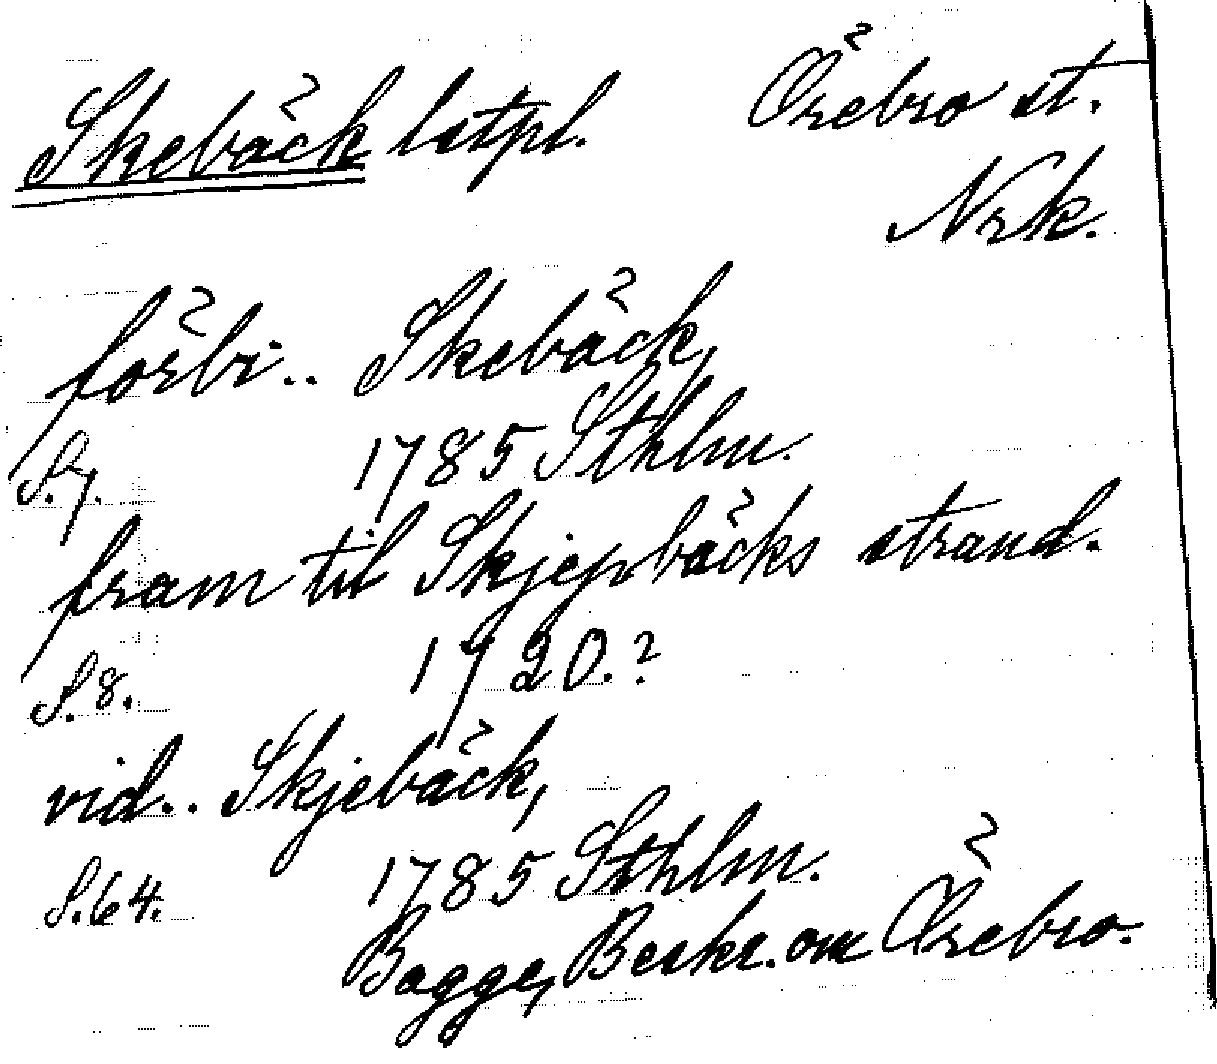 Skebäck lstpl. Örebro st.
Nrk.
förbi.. Skebäck,
S. 7. 1785 Sthlm.
fram til Skjepbäcks strand.
S. 8. 1720.?
vid.. Skjebäck,
S. 64. 1785 Sthlm.
Bagge, Beskr. om Örebro.